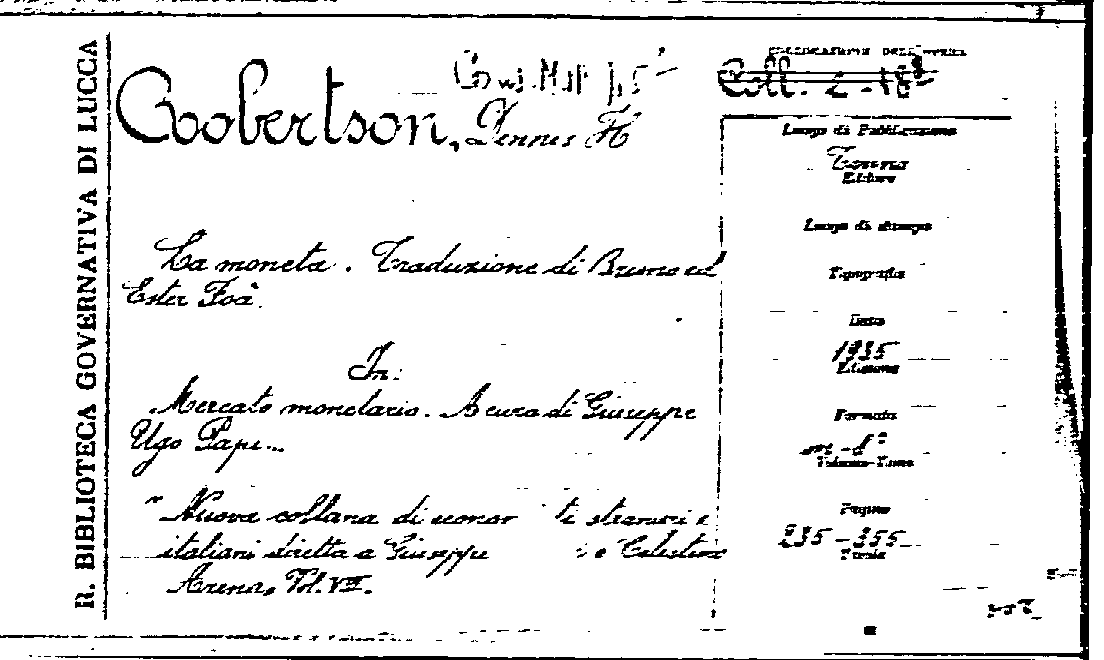 R. BIBLIOTECA GOVERNATIVA DI LUCCA
COLLOCAZIONE DELL'OPERA
Coll. 2-18
Robertson, Dennis H
Luogo di Pubblicazione
Torino
Editore
Luogo di stampa
La moneta. Traduzione di Bruno ed
Ester Foà.
Tipografia
Data
1935
Edizione
In:
Mercato monetario. A cura di Giuseppe
Ugo Papi...
Formato
m-8°
Volume-Tomo
"Nuova collana di econo ti stranieri e
italiani diretta a Giuseppe e Celestino
Arena, Vol. VIII.
Pagine
235-355
Tavole